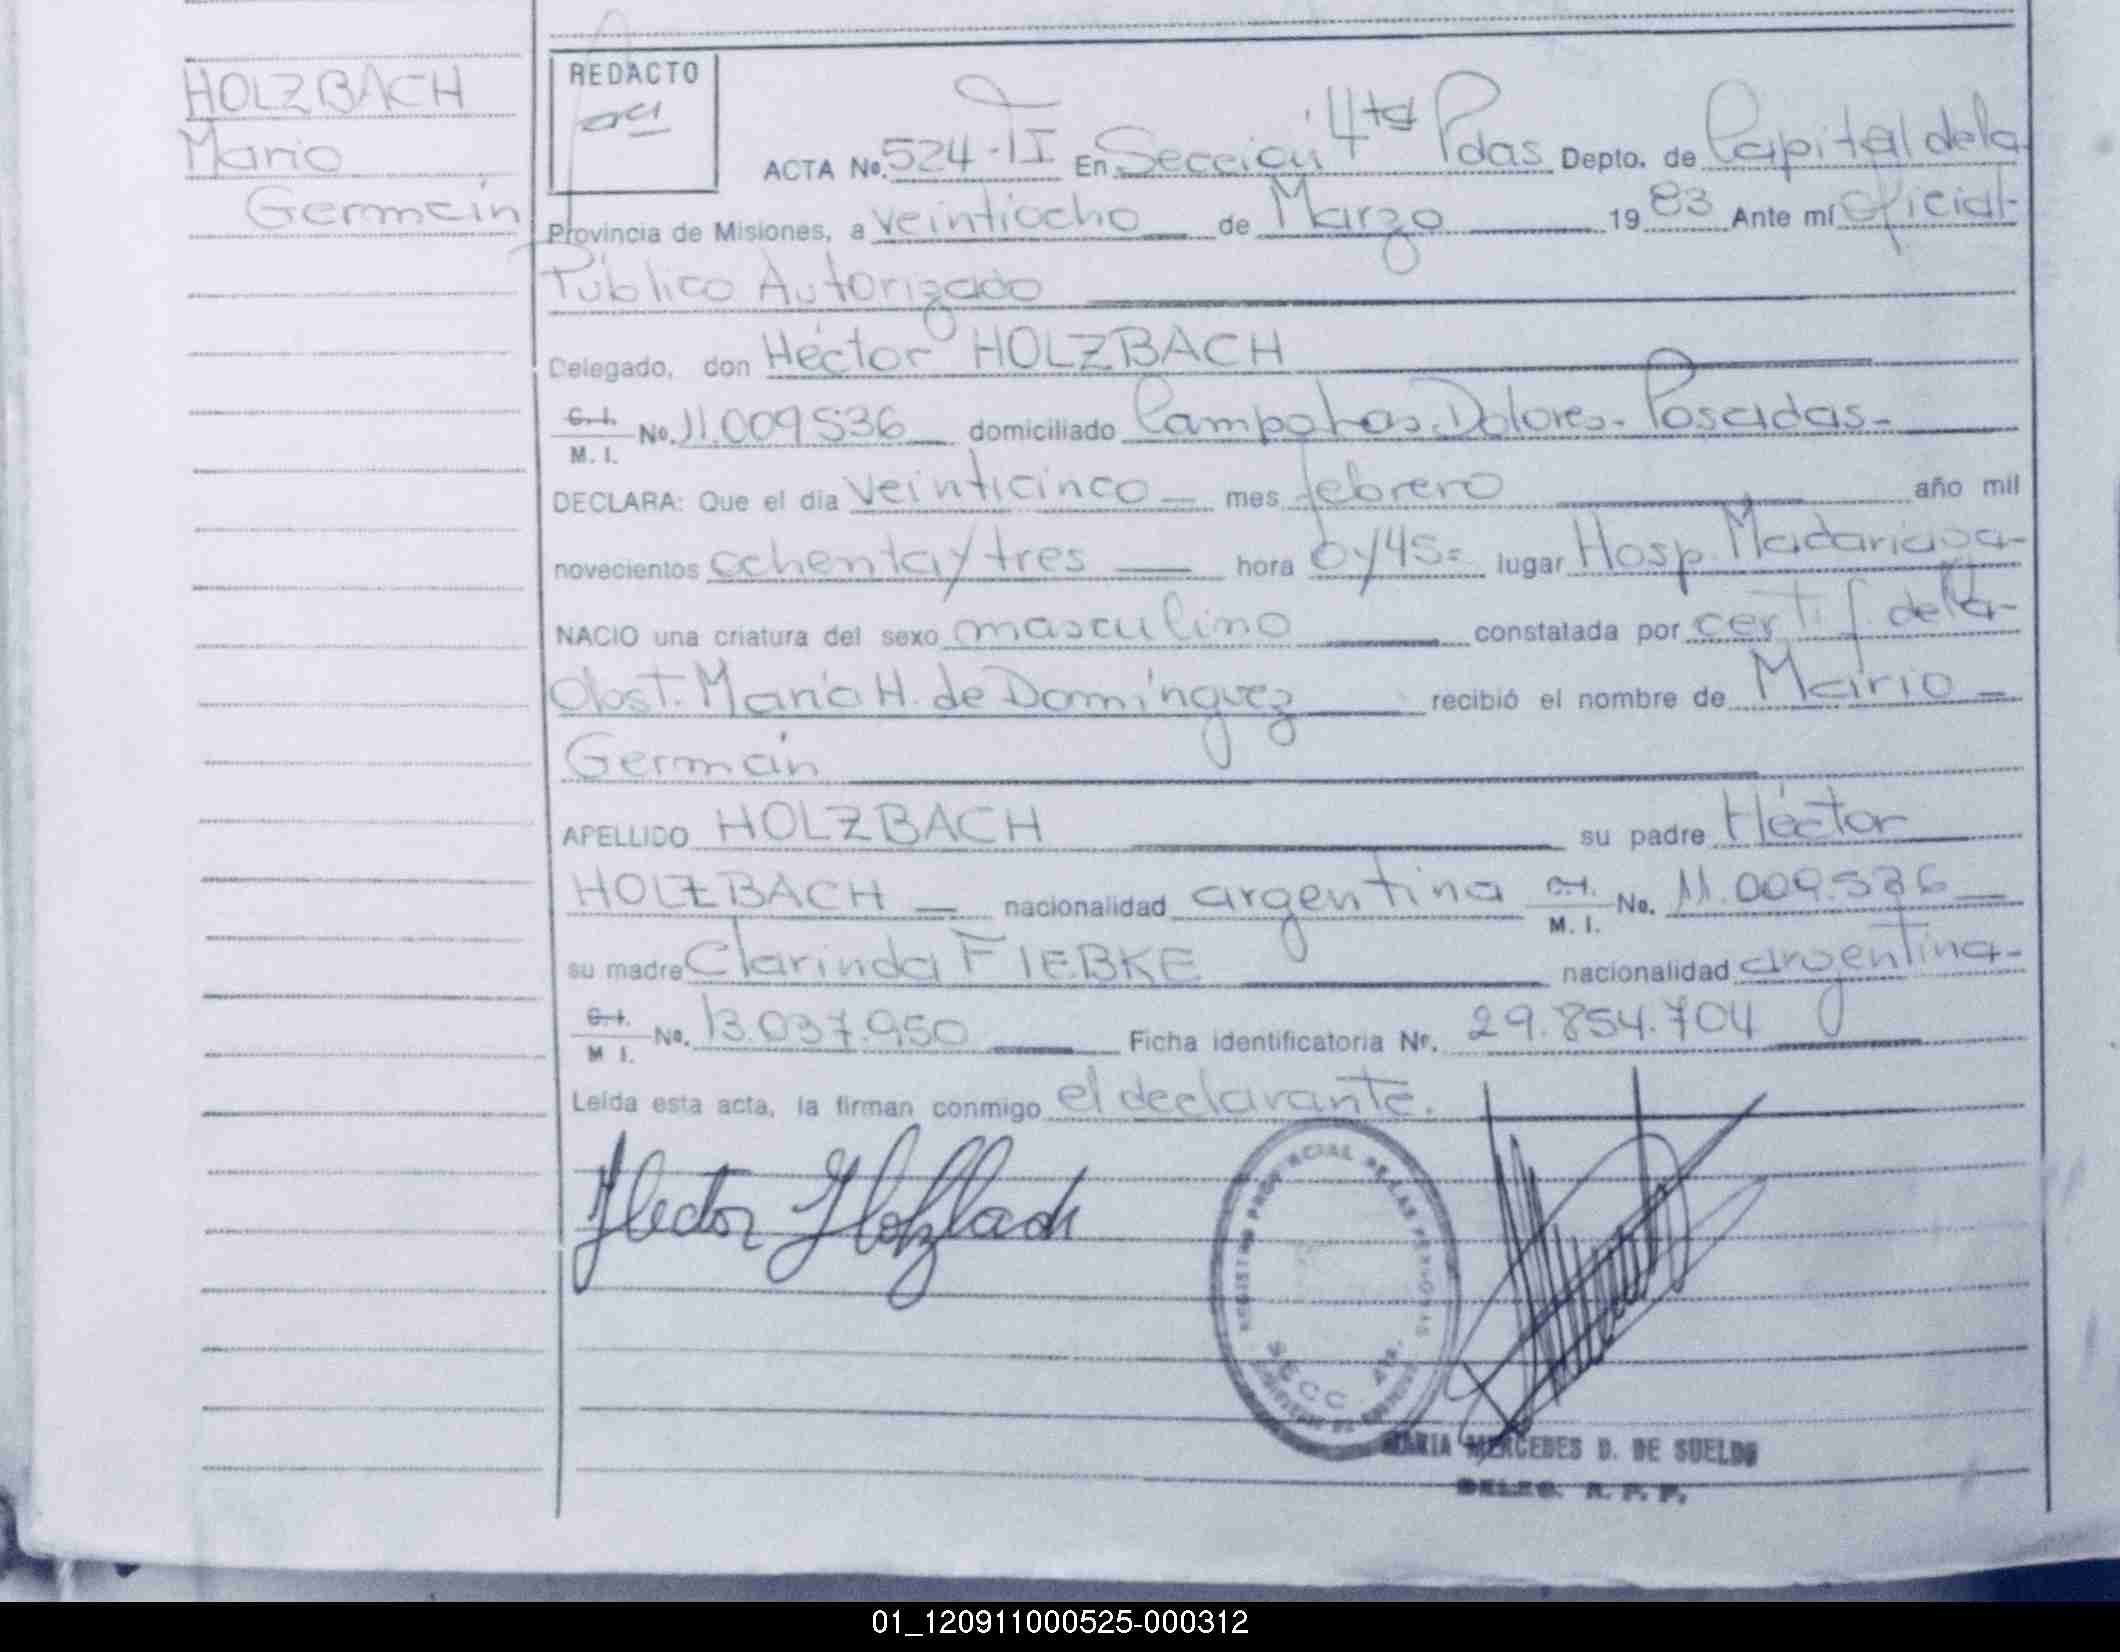 HOLZBACH
Mario
Germán
REDACTO
ACTA No. 524-TI En Sección 4ta Pdas Depto. de Capital de la
Provincia de Misiones, a veintiocho de Marzo 1983 Ante mí oficial
Público Autorizado
Delegado, don Héctor HOLZBACH
C. I. M. I. No. 11.009536 domiciliado Dolores - Posadas -
DECLARA: Que el día veinticinco mes febrero año mil
novecientos ochenta y tres hora 0y45= lugar Hosp. Madariaga -
NACIO una criatura del sexo masculino constatada por certif. de la
Obst. María H. de Domínguez recibió el nombre de Mario
Germán
APELLIDO HOLZBACH su padre Héctor
HOLZBACH nacionalidad argentina C.I. M. I. No. 11.009.536
su madre Clarinda FIEBKE nacionalidad argentina -
C. I. M I. No. 13.037.950 Ficha identificatoria Nr. 29.854.704
Leída esta acta, la firman conmigo el declarante.
Hector Holzbach
REGISTRO PROVINCIAL DE LAS PERSONAS
SECC 4ta.
MARIA MERCEDES D. DE SUELDO
DELEG. R. P. P.
01_120911000525-000312